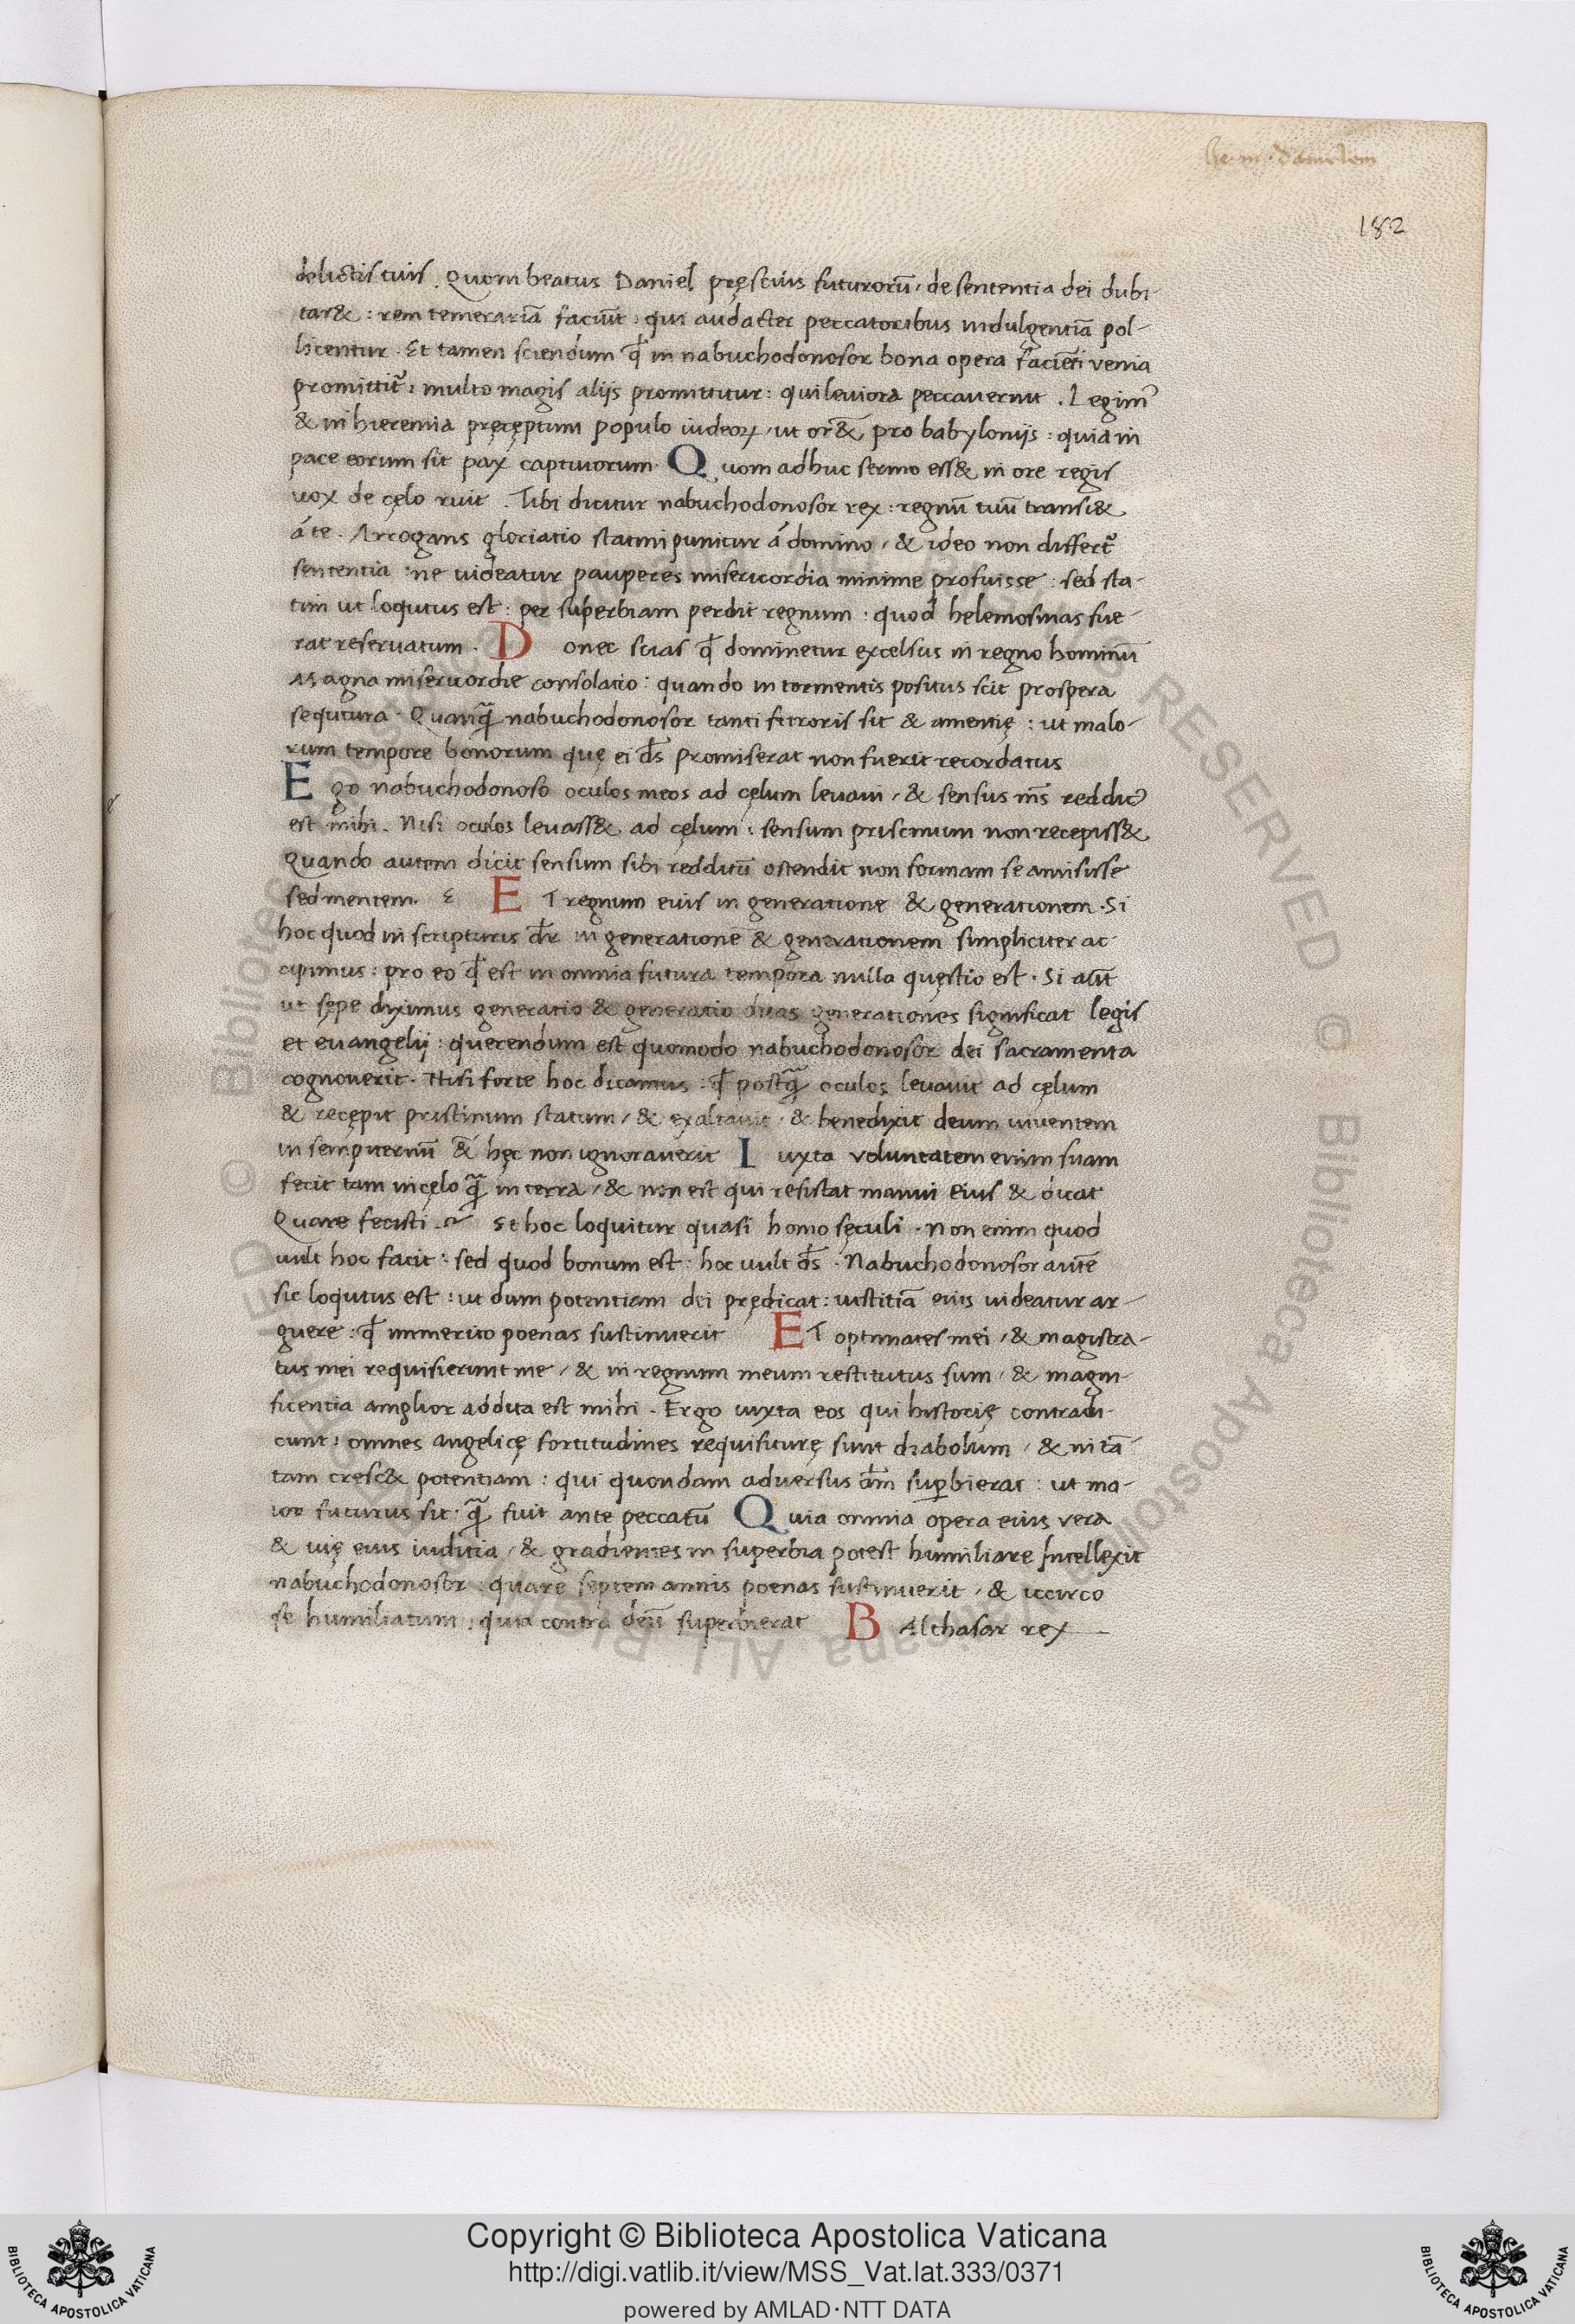 he. in. danielem
182
delictis tuis . Quom beatus Daniel pręscius futurorū / de sententia dei dubi-
tar& : rem temerariā faciūt : qui audacter peccatoribus indulgentiā pol-
licentur . Et tamen sciendum ꝙ in nabuchodonosor bona opera faciēti venia
promittit᷑ : multo magis alijs promittitur : qui leuiora peccauerunt . Legim᷒
& in hieremia pręcęptum populo iudeoꝝ / ut or&̄ pro babylonijs : quia in
pace eorum sit pax captiuorum . Quom adhuc sermo ess& in ore regis
uox de cęlo ruit . Tibi dicitur nabuchodonosor rex : regnū tuū transi&
á te . Arrogans gloriatio statim punitur á domino / & ideo non differt᷑
sententia : ne uideatur pauperes misericordia minime profuisse : sed sta-
tim ut loqutus est : per superbiam perdit regnum : quod helemosinas fue-
rat reseruatum . Donec scias ꝙ dominetur excelsus in regno hominū
Magna misericordie consolatio : quando in tormentis positus scit prospera
sequtura . Quanꝗ̄ nabuchodonosor tanti furoris sit & amentię : ut malo-
rum tempore bonorum quę ei d̄s promiserat non fuerit recordatus
Ego nabuchodonoso oculos meos ad cęlum leuaui / & sensus m̄s reddit᷒
est mihi . Nisi oculos leuass& ad cęlum : sensum priscinum non recepiss&
Quando autem dicit sensum sibi redditū ostendit non formam se amisisse
sed mentem . ET regnum eius in generatione & generationem . Si
hoc quod in scripturis dr̄ in generationē & generationem simpliciter ac-
cipimus : pro eo ꝙ est in omnia futura tempora nulla quęstio est . Si aūt
ut sępe diximus generatio & generatio duas generationes significat legis
et euangelij : querendum est quomodo nabuchodonosor dei sacramenta
cognouerit . Nisi forte hoc dicamus : ꝙ postꝗ̄ oculos leuauit ad cęlum
& recępit pristinum statum / & exaltauit / & benedixit deum uiuentem
in sempiternū &̄ hęc non ignorauerit Iuxta voluntatem enim suam
fecit tam in cęlo ꝗ̄ in terra / & non est qui resistat manui eius & dicat
Quare fecisti . Et hoc loquitur quasi homo sęculi . Non enim quod
uult hoc facit : sed quod bonum est : hoc uult d̄s . Nabuchodonosor autē
sic loqutus est : ut dum potentiam dei prędicat : iustitiā eius uideatur ar-
guere : ꝙ immerito poenas sustinuerit ET optimates mei / & magistra-
tus mei requisierunt me / & in regnum meum restitutus sum / & magni-
ficentia amplior addita est mihi . Ergo iuxta eos qui historię contradi-
cunt : omnes angelicę fortitudines requisiturę sunt diabolum / & in tā-
tam cresc& potentiam : qui quondam aduersus dm̄ suꝑbierat : ut ma-
ior futurus sit ꝗ̄ fuit ante peccatū Quia omnia opera eius vera
& uię eius iuditia / & gradientes in superbia potest humiliare Intellexit
nabuchodonosor : quare septem annis poenas sustinuerit / & iccirco
se humiliatum : quia contra deū superbierat BAlthasar rex
Copyright © Biblioteca Apostolica Vaticana
http://digi.vatlib.it/view/MSS_Vat.lat.333/0371
powered by AMLAD·NTT DATA